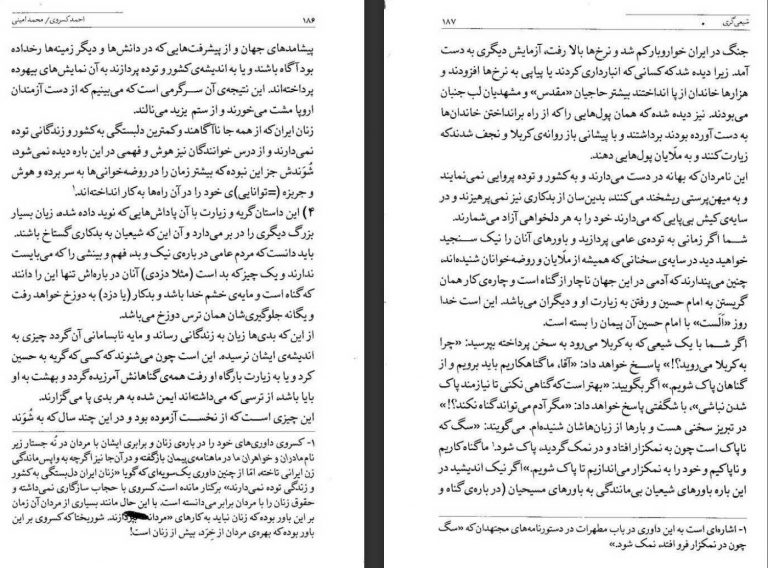 ۱۸۶
احمد کسروی/ محمد امینی
پیشامدهای جهان و از پیشرفت‌هایی که در دانش‌ها و دیگر زمینه‌ها رخ‌داده
بود آگاه باشند و یا به اندیشه‌ی کشور و توده پردازند به آن نمایش‌های بیهوده
پرداخته‌اند. این نتیجه‌ی آن سرگرمی است که می‌بینیم که از دست آزمندان
اروپا مشت می‌خورند و از ستم یزید می‌نالند.
زنان ایران که از همه جا ناآگاهند و کمترین دلبستگی به کشور و زندگانی توده
نمی‌دارند و از درس خوانندگان نیز هوش و فهمی در این باره دیده نمی‌شود،
شُوَندش جز این نبوده که بیشتر زمان را در روضه‌خوانی‌ها به سر برده و هوش
و جربزه (=توانایی)ی خود را در آن راه‌ها به کار انداخته‌اند.۱
۴) این داستان گریه و زیارت با آن پاداش‌هایی که نوید داده شده، زیان بسیار
بزرگ دیگری را در بر می‌دارد و آن این که شیعیان به بدکاری گستاخ باشند.
باید دانست که مردم عامی در باره‌ی نیک و بد، فهم و بینشی را که می‌بایست
ندارند و یک چیز که بد است (مثلا دزدی) آنان در باره‌اش تنها این را دانند
که گناه است و مایه‌ی خشم خدا باشد و بدکار (یا دزد) به دوزخ خواهد رفت
و یگانه جلوگیری‌شان همان ترس دوزخ می‌باشد.
از این که بدی‌ها زیان به زندگانی رساند و مایه نابسامانی آن گردد چیزی به
اندیشه‌ی ایشان نرسیده. این است چون می‌شنوند که کسی که گریه به حسین
کرد و یا به زیارت بارگاه او رفت همه‌ی گناهانش آمرزیده گردد و بهشت به او
بایا باشد، از ترسی که می‌داشته‌اند ایمن شده به هر بدی پا می‌گزارند.
این چیزی است که از نخست آزموده بود و در این چند سال که به شُوَند
۱- کسروی داوری‌های خود را در باره‌ی زنان و برابری ایشان با مردان در نُه جستار زیر
نام مادران و خواهران ما در ماهنامه‌ی پیمان بازگفته و در آن‌جا نیز اگرچه به واپس‌ماندگی
زن ایرانی تاخته، امّا از چنین داوری یک‌سویه‌ای که گویا «زنان ایران دلبستگی به کشور
و زندگی توده نمی‌دارند» برکنار مانده است. کسروی با حجاب سازگاری نمی‌داشته و
حقوق زنان را با مردان برابر می‌دانسته است. با این حال مانند بسیاری از مردان آن زمان
بر این باور بوده که زنان نباید به کارهای «مردانه» بپردازند. شوربختا که کسروی بر این
باور بوده که بهره‌ی مردان از خِرَد، بیش از زنان است!
شیعی‌گری
۱۸۷
جنگ در ایران خواروبار کم شد و نرخ‌ها بالا رفت، آزمایش دیگری به دست
آمد. زیرا دیده شد که کسانی که انبارداری کردند یا پیاپی به نرخ‌ها افزودند و
هزارها خاندان از پا انداختند بیشتر حاجیان «مقدس» و مشهدیان لب جنبان
می‌بودند. نیز دیده شده که همان پول‌هایی را که از راه برانداختن خاندان‌ها
به دست آورده بودند برداشتند و با پیشانی باز روانه‌ی کربلا و نجف شدند که
زیارت کنند و به ملّایان پول‌هایی دهند.
این نامردان که بهانه در دست می‌دارند و به کشور و توده پروایی نمی‌نمایند
و به میهن‌پرستی ریشخند می‌کنند، بدین‌سان از بدکاری نیز نمی‌پرهیزند و در
سایه‌ی کیش بی‌پایی که می‌دارند خود را به هر دلخواهی آزاد می‌شمارند.
شما اگر زمانی به توده‌ی عامی پردازید و باورهای آنان را نیک سنجید
خواهید دید در سایه‌ی سخنانی که همیشه از ملّایان و روضه‌خوانان شنیده‌اند،
چنین می‌پندارند که آدمی در این جهان ناچار از گناه است و چاره‌ی کار همان
گریستن به امام حسین و رفتن به زیارت او و دیگران می‌باشد. این است خدا
روز «اَلَست» با امام حسین آن پیمان را بسته است.
اگر شما با یک شیعی که به کربلا می‌رود به سخن پرداخته بپرسید: «چرا
به کربلا می‌روید؟!» پاسخ خواهد داد: «آقا، ما گناهکاریم باید برویم و از
گناهان پاک شویم.» اگر بگویید: «بهتر است که گناهی نکنی تا نیازمند پاک
شدن نباشی»، با شگفتی پاسخ خواهد داد: «مگر آدم می‌تواند گناه نکند؟!»
در تبریز سخنی هست و بارها از زبان‌هاشان شنیده‌ام. می‌گویند: «سگ که
ناپاک است چون به نمکزار افتاد و در نمک گردید، پاک شود.۱ ما گناه کاریم
و ناپاکیم و خود را به نمکزار می‌اندازیم تا پاک شویم.» اگر نیک اندیشید در
این باره باورهای شیعیان بی‌مانندگی به باورهای مسیحیان (در باره‌ی گناه و
۱- اشاره‌ای است به این داوری در باب مطهرات در دستورنامه‌های مجتهدان که «سگ
چون در نمکزار فرو افتد، نمک شود.»